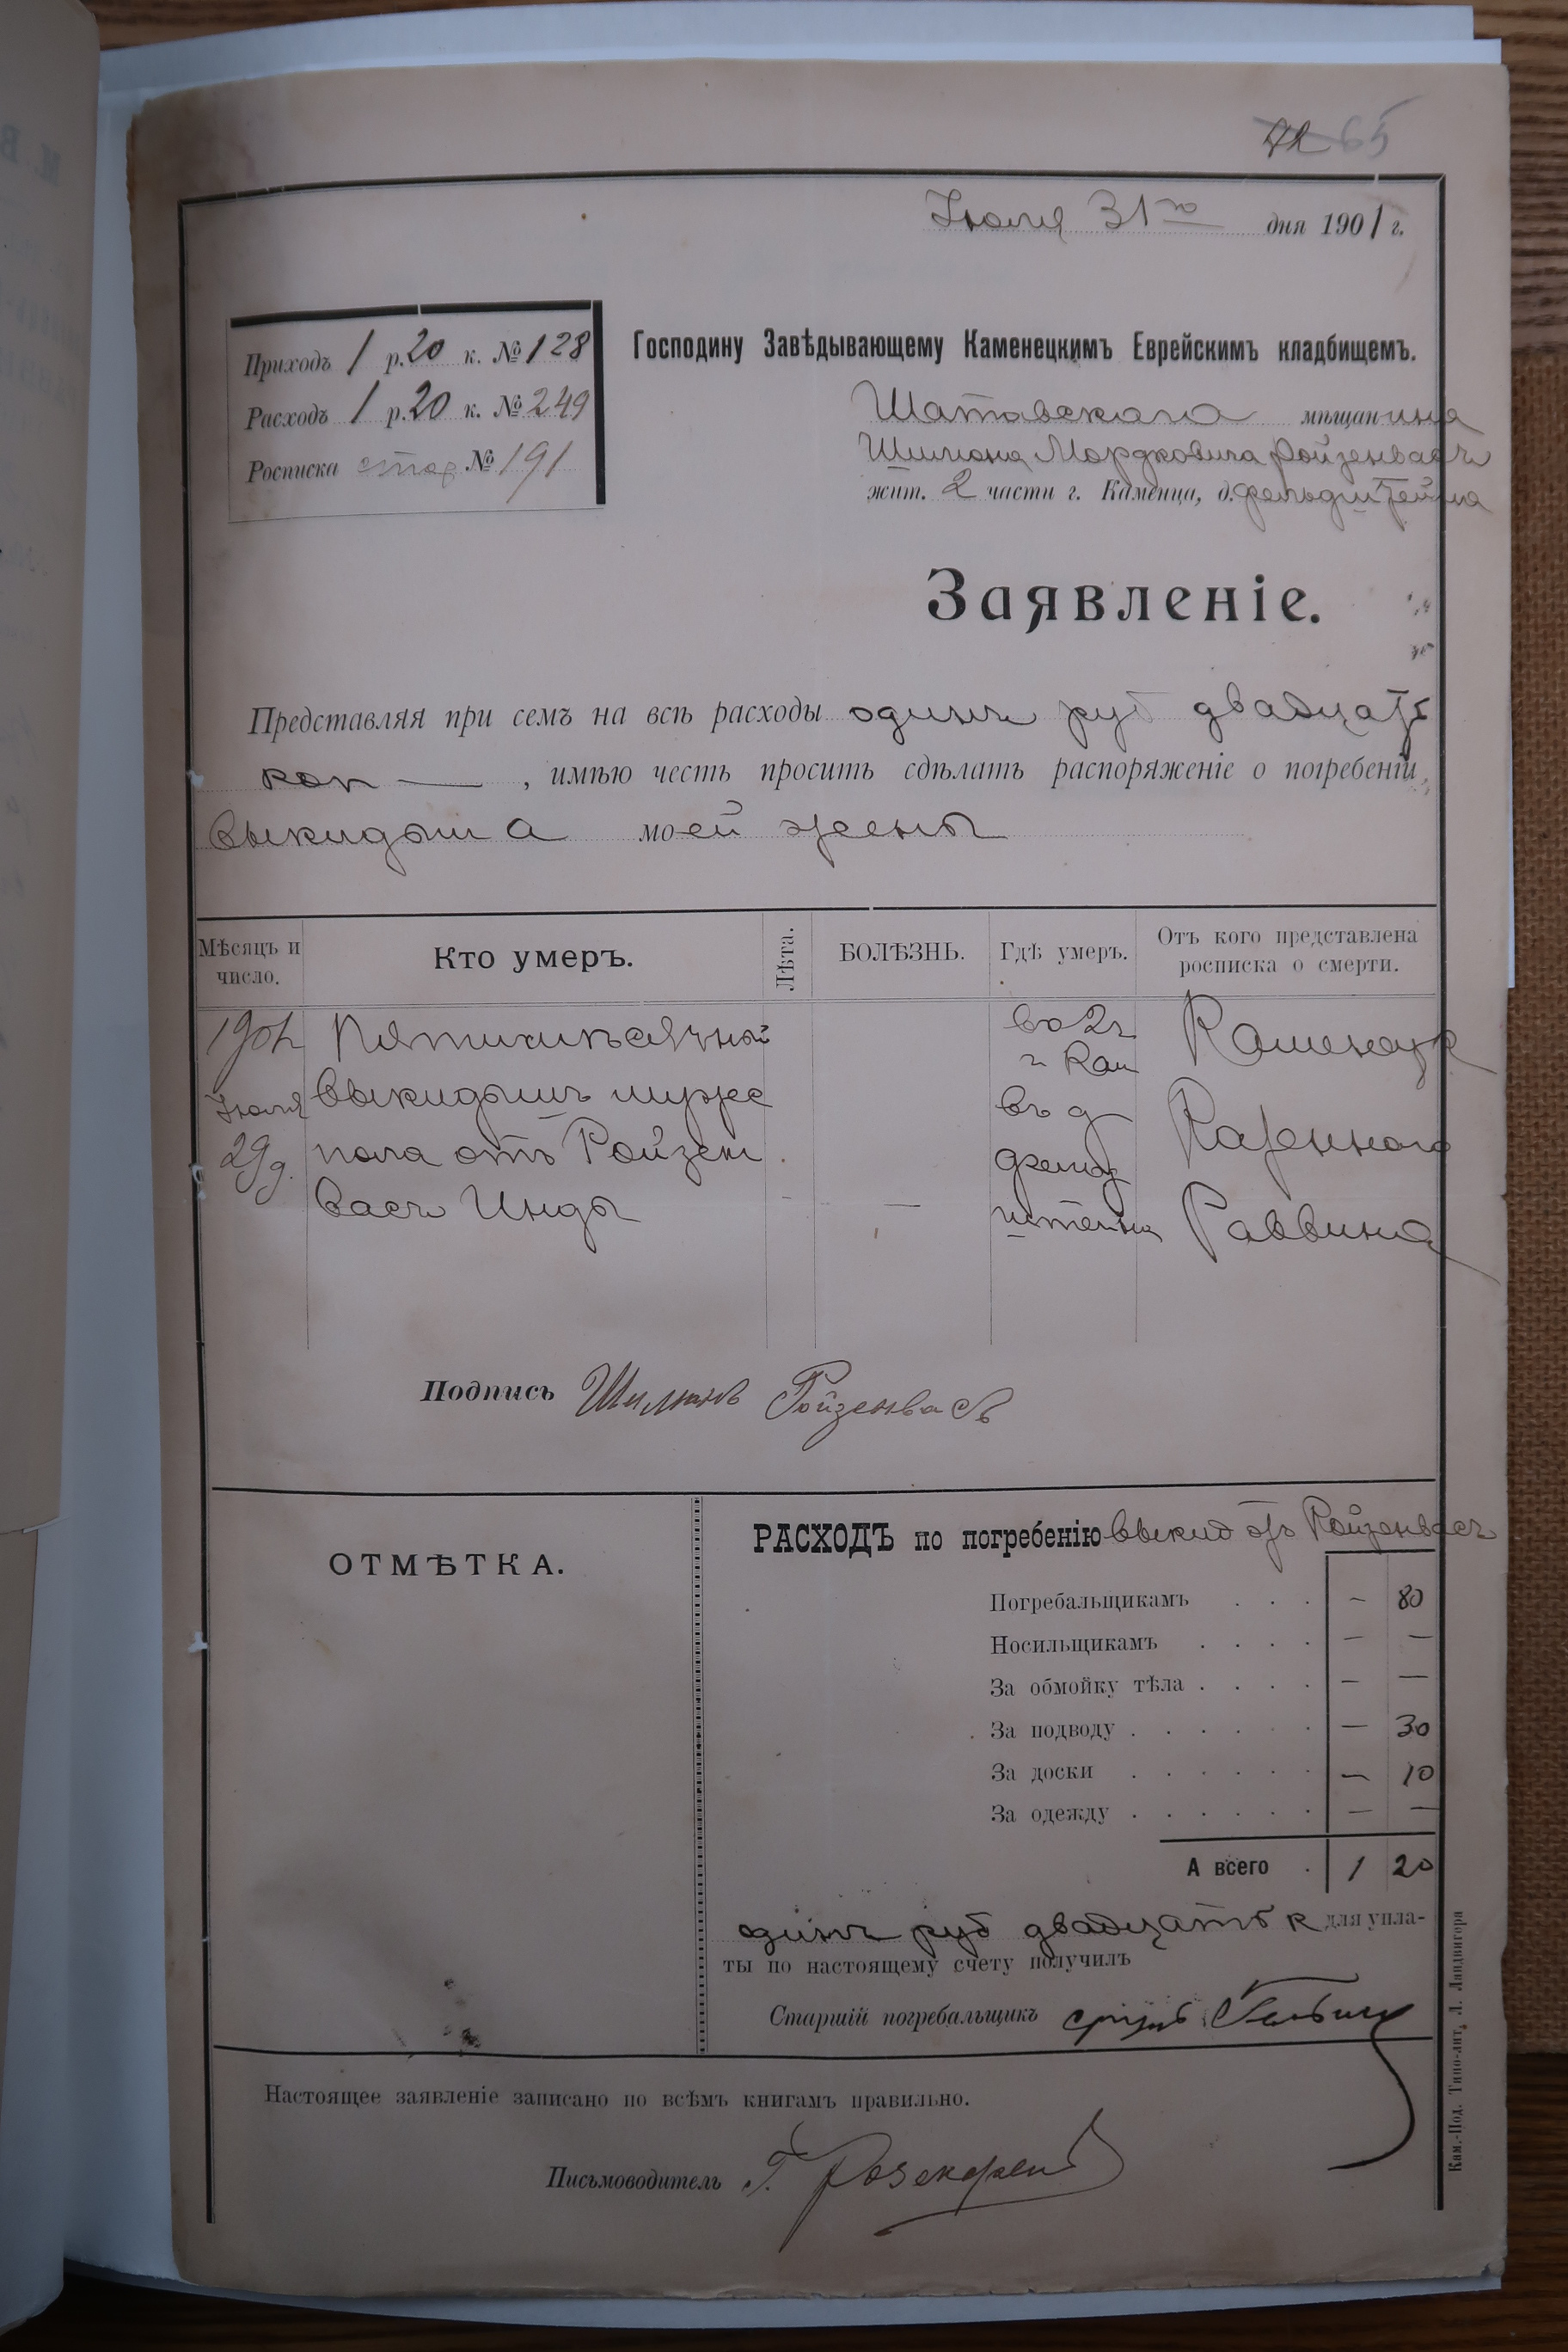 65
Іюля 31го дня 1901 г.
Приходъ 1 р. 20 к. № 128
Расходъ 1 р. 20 к. № 249
Росписка № 191
Господину Завѣдывающему Каменецкимъ Еврейскимъ кладбищемъ.
Шатавскаго мѣщанина
Шимона Мордковича Ройзенвасъ
жит. 2 части г. Каменца, д. Фельдштейна
Заявленіе.
Представляя при семъ на всѣ расходы одинъ руб двадцать
коп — , имѣю честь просить сдѣлать распоряженіе о погребеніи
выкидыша моей жены
Мѣсяцъ и число. Кто умеръ. Лѣта. БОЛѢЗНЬ. Гдѣ умеръ. Отъ кого представлена росписка о смерти.
1901 Пятимѣсячный во 2ч Каменецк
г Кам
Іюля выкидышъ мужс въ д Казеннаго
29 д. пола отъ Ройзен Фельд
васъ Инды — штейна Раввина
Подпись Шимонъ Ройзенвасъ
ОТМѢТКА.
РАСХОДЪ по погребенію выкид отъ Ройзенвасъ
Погребальщикамъ . . . — 80
Носильщикамъ . . . . — —
За обмойку тѣла . . . . — —
За подводу . . . . . . — 30
За доски . . . . . . — 10
За одежду . . . . . . — —
А всего . 1 20
одинъ руб двадцать к для упла-
ты по настоящему счету получилъ
Старшій погребальщикъ
Настоящее заявленіе записано по всѣмъ книгамъ правильно.
Письмоводитель Г. Розенфельд
Кам.-Под. Типо-лит. Л. Ландвигора